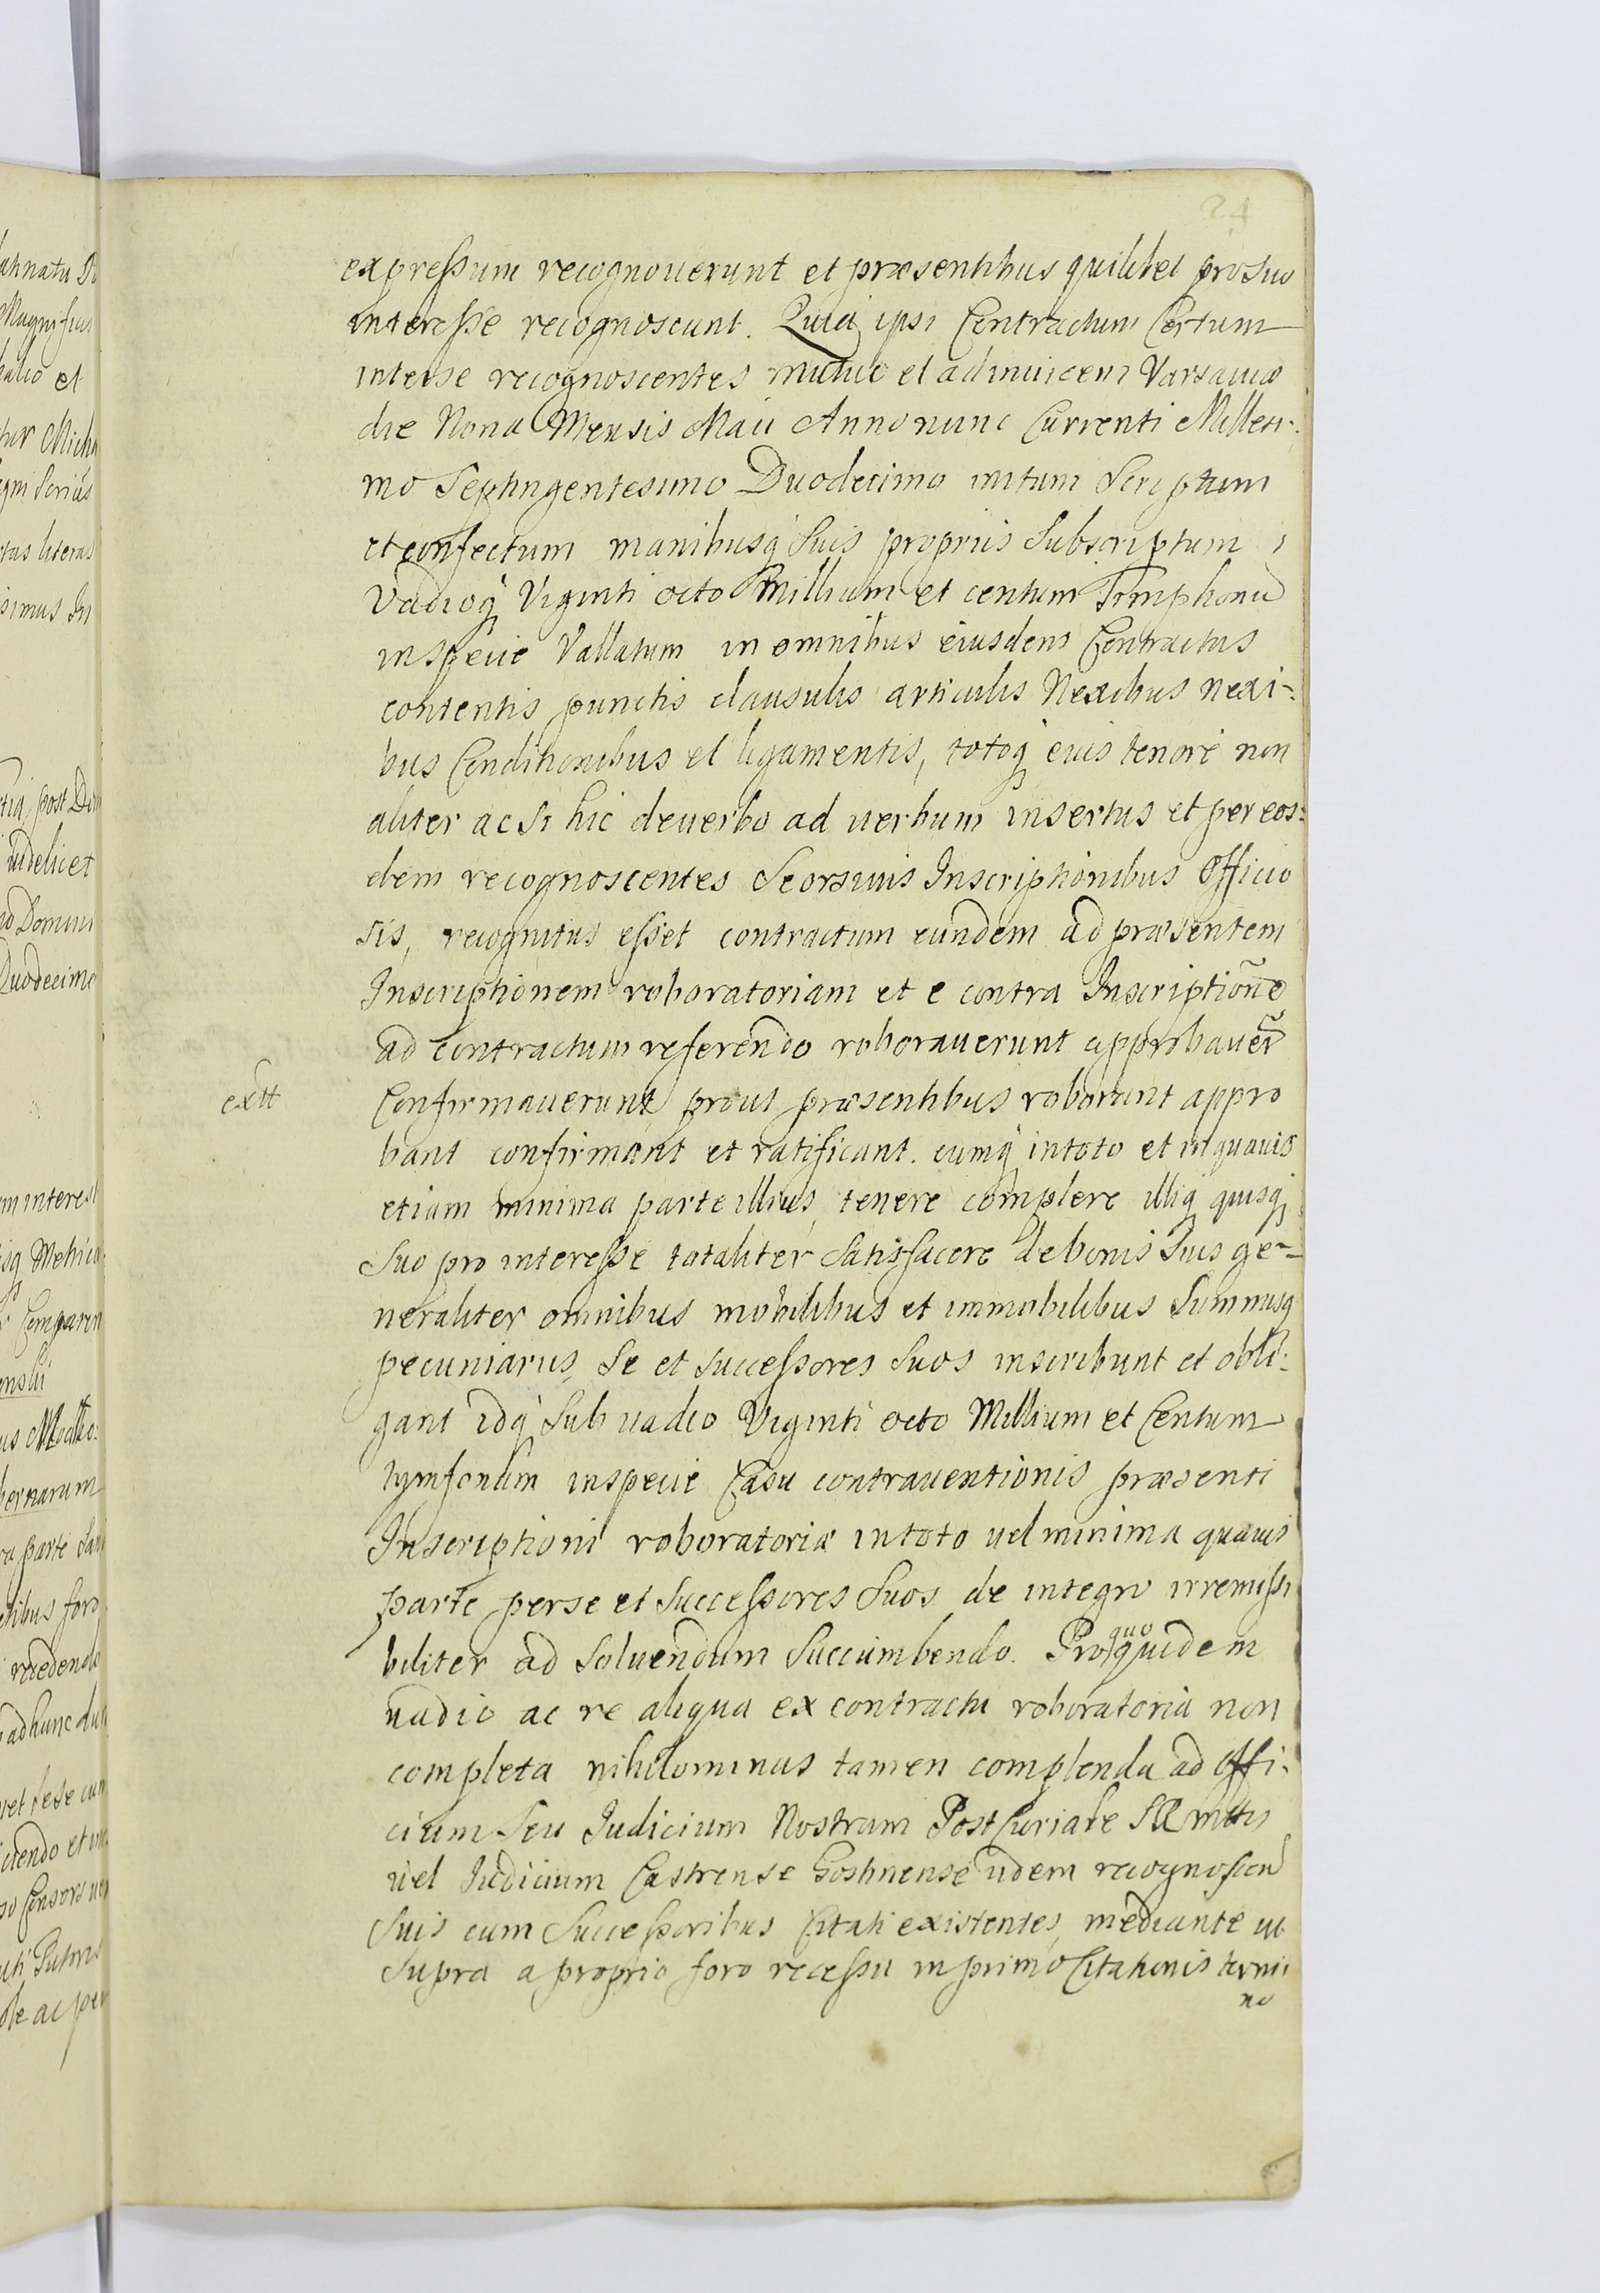 24
expressum recognoverunt et præsentibus quilibet pro suo
interesse recognoscunt. Quia ipsi Contractum Certum
inter se recognoscentes mutuo et adinuicem Varsauiæ
die Nona Mensis Maii Anno nunc Currenti Millesi-
mo Septingentesimo Duodecimo initum Scriptum
et confectum manibusq Suis propriis Subscriptum
Vadioq Viginti octo Millium et centum Timphonu
in specie Vallatum in omnibus eiusdem Contractus
contentis punctis clausulis articulis Nexibus nexi-
bus Conditionibus et ligamentis, totoq eius tenore non
aliter ac si hic de uerbo ad uerbum insertus et per eos-
dem recognoscentes Seorsiuis Inscriptionibus Officio
sis, recognitus esset contractum eundem ad præsentem
Inscriptionem roboratoriam et e contra Inscriptionē
ad contractum referendo roborauerunt approbauerū
exttt
Confirmauerunt, prout præsentibus roborant appro
bant confirmant et ratificant. eumq in toto et in quauis
etiam minima parte illius, tenere complere illiq quisq
Suo pro interesse totaliter Satisfacere de bonis Suis ge-
neraliter omnibus mobilibus et immobilibus Summisq
pecuniariis, Se et Successores Suos inscribunt et obli-
gant idq Sub uadio Viginti octo Millium et Centum
tymfonum in specie Casu contrauentionis præsenti
Inscriptioni roboratoriæ in toto uel minima quauis
parte per se et Successores Suos de integro irremissi
biliter ad Soluendum Succumbendo. Pro quo quidem
uadio ac re aliqua ex contractu roboratoria non
completa nihilominus tamen complenda ad Offi-
cium Seu Iudicium Nostrum Post Curiale
uel Iudicium Castrense Gostinense iidem recognoscen
Suis cum Successoribus Citati existentes, mediante ut
Supra a proprio foro recessu in primo Citationis termi
no